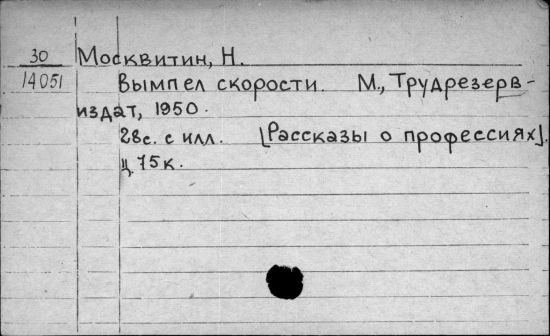 30 Москвитин, Н.
14051 Вымпел скорости. М., Трудрезерв-
издат, 1950.
28с. с илл. [Рассказы о профессиях].
Ц. 75к.